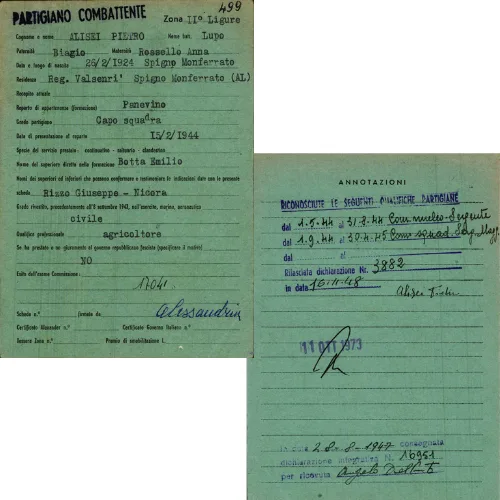 499
PARTIGIANO COMBATTENTE Zona IIº Ligure
Cognome e nome ALISEI PIETRO Nome batt. Lupo
Paternità Biagio Maternità Rosselle Anna
Data e luogo di nascita 26/2/1924 Spigno Monferrato
Residenza Reg. Valsenri' Spigno Monferrato (AL)
Recapito attuale
Reparto di appartenenza (formazione) Panevino
Grado partigiano Capo squadra
Data di presentazione al reparto 15/2/1944
Specie del servizio prestato - continuativo - saltuario - clandestino
Nome del superiore diretto nella formazione Botta Emilio
Nomi dei superiori ed inferiori che possono confermare e testimoniare le indicazioni date con le presente
scheda Rizzo Giuseppe - Nicora
Grado rivestito, precedentemente all'8 settembre 1943, nell'esercito, marina, aeronautica
civile
Qualifica professionale agricoltore
Se ha prestato o no giuramento al governo repubblicano fascista (specificare il motivo)
NO
Esito dell'esame Commissione:
17041
Scheda n.° firmata da Alessandria
Certificato Alexander n.° Certificato Governo Italiano n.°
Tessera Zona n.° Premio di smobilitazione L.
ANNOTAZIONI
RICONOSCIUTE LE SEGUENTI QUALIFICHE PARTIGIANE
dal 1.5.44 al 31.8.44 Com. nucleo - Sergente
dal 1.9.44 al 30.4.45 Com. squad. Serg. Magg.
dal al
Rilasciata dichiarazione Nr. 3882
in data 16.11.48
Alisei
11 OTT 1973
In data 28-8-1947 consegnata
dichiarazione integrativa N. 16951
per ricevuta Angelo